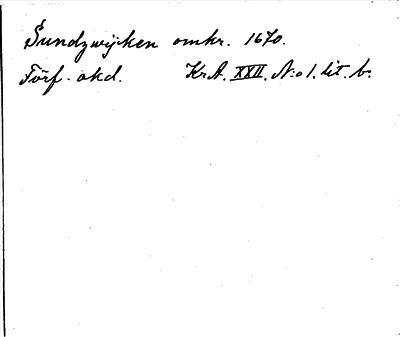 Sundzwijcken omkr. 1670.
Förf. okd. Kr.A. XXII. N:o 1. lit. b.